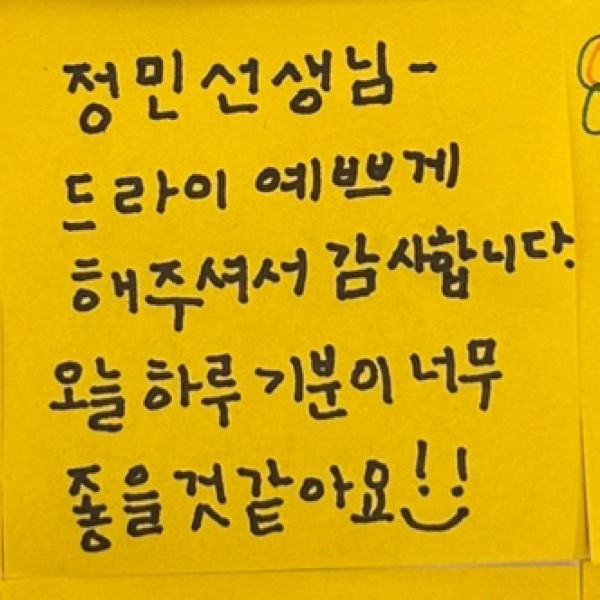 정민 선생님-
드라이 예쁘게
해주셔서 감사합니다.
오늘 하루 기분이 너무
좋을것같아요!!